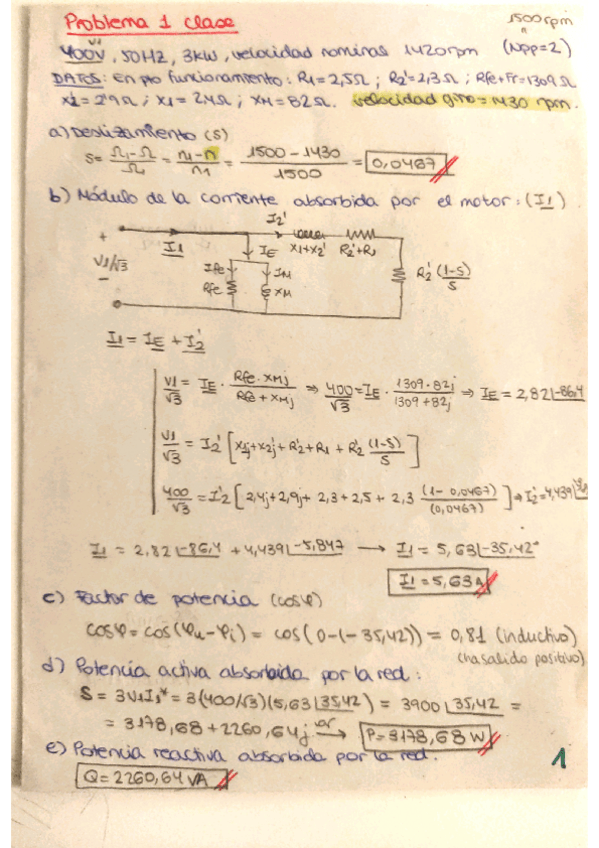 Problema 1 clase
1500rpm
400V, 50Hz, 3kW, velocidad nominas 1420rpm (Npp=2)
DATOS: En pto funcionamiento: R1=2,5Ω ; R2'=2,3Ω ; Rfe+Fr=1309Ω
X2'=2'9Ω ; X1=2,4Ω ; XM=82Ω. velocidad giro=1430 rpm.
a) Deslizamiento (s)
S = Ω1-Ω/Ω1 = n1-n/n1 = 1500-1430/1500 = 0,0467
b) Módulo de la corriente absorbida por el motor: (I1)
I2'
+ I1 IE X1+X2' R2'+R1
V1/√3 Ife IM R2' (1-S)/S
- Rfe XM
I1 = IE + I2'
V1/√3 = IE · Rfe·XMj/Rfe+XMj ⇒ 400/√3 = IE · 1309·82j/1309+82j ⇒ IE = 2,82∠-86,4
V1/√3 = I2' [X1j+X2'j+R2'+R1+R2' (1-S)/S]
400/√3 = I2' [2,4j+2,9j+2,3+2,5+2,3 (1-0,0467)/(0,0467)] ⇒ I2'=4,439
I1 = 2,82∠-86,4 + 4,439∠-5,847 → I1 = 5,63∠-35,42°
I1 = 5,63A
c) Factor de potencia (cosφ)
cosφ = cos(φu-φi) = cos(0-(-35,42)) = 0,81 (inductivo)
(ha salido positivo)
d) Potencia activa absorbida por la red:
S = 3V1I1* = 3(400/√3)(5,63∠35,42) = 3900∠35,42 =
= 3178,68 + 2260,64j var → P=3178,68 W
e) Potencia reactiva absorbida por la red.
Q = 2260,64 VA
1